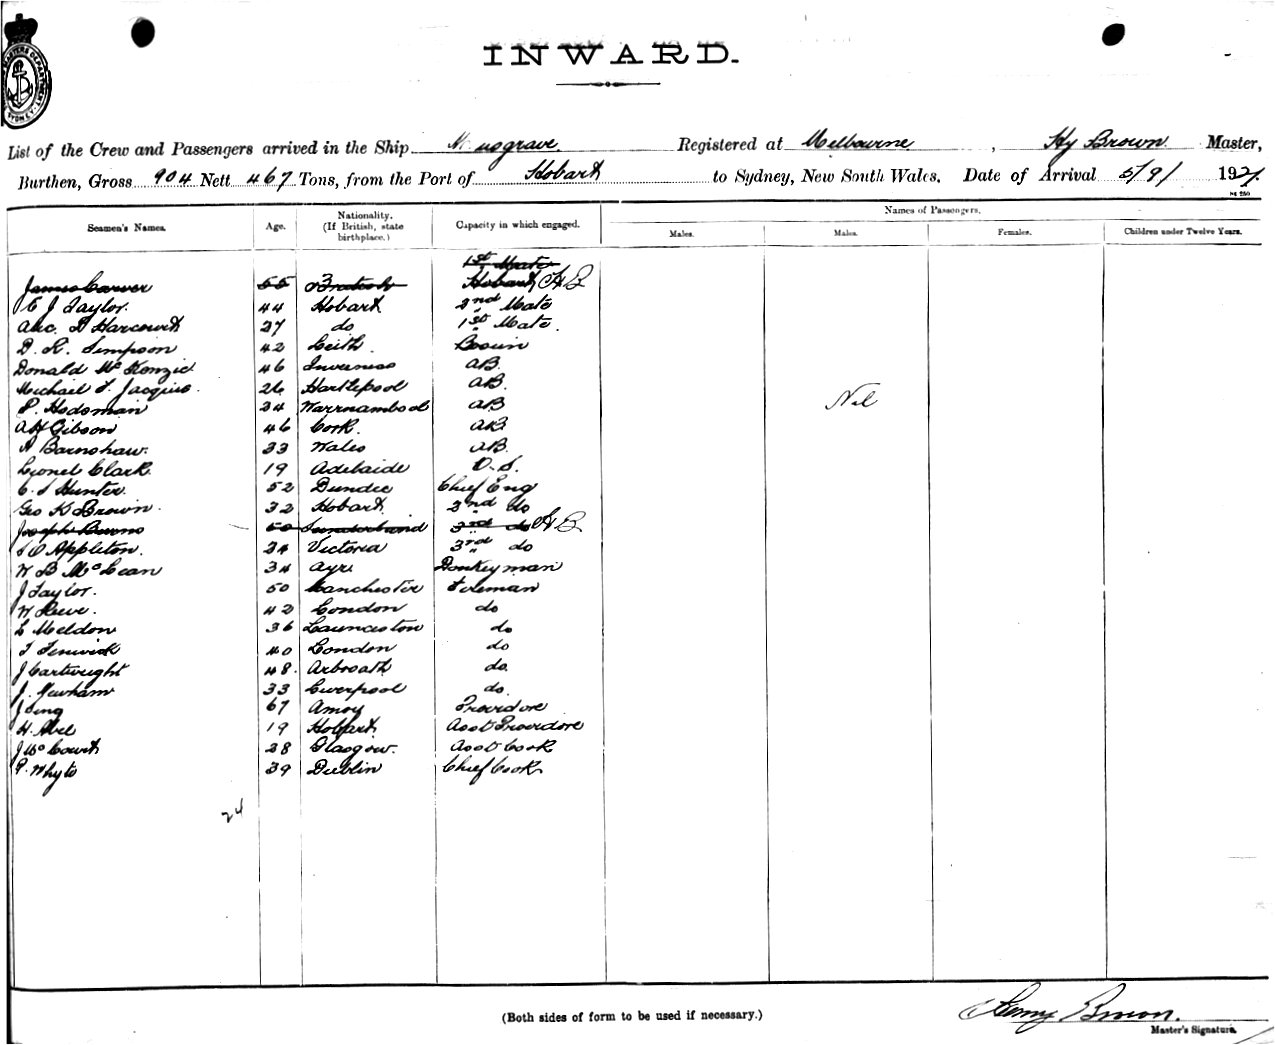 INWARD.
List of the Crew and Passengers arrived in the Ship Musgrave. Registered at Melbourne, Hy Brown Master,
Burthen, Gross 904 Nett 467 Tons, from the Port of Hobart to Sydney, New South Wales, Date of Arrival 5/9/ 1921.
Names of Passengers.
Seamen's Names. Age. Nationality. (If British, state birthplace.) Capacity in which engaged. Males. Males. Females. Children under Twelve Years.
1st Mate
James Carver 55 British Hobart H B
E J Taylor. 44 Hobart 2nd Mate
Alec. D Harcourt 27 do 1st Mate.
D. R. Simpson 42 Leith Bosun
Donald McKenzie 46 Inverness AB.
Michael F. Jacques. 26 Hartlepool AB.
P. Hodsman 34 Warrnambool AB
Nil
AH Gibson 46 Cork. AB
A Barnshaw. 33 Wales AB.
Lionel Clark. 19 Adelaide O.S.
C. S Hunter. 52 Dundee Chief Eng
Geo K Brown. 32 Hobart. 2nd do
Joseph Burns 50 Sunderland 3rd do H B
Appleton. 24 Victoria 3rd do
W B McLean 34 Ayr. Donkeyman
J Taylor. 50 Manchester Fireman
W Reeve. 42 London do
L Meldon 36 Launceston do
T Fenwick 40 London do
J Cartwright 48. Arbroath do.
J. Newham 33 Liverpool do.
J Sing 67 Amoy Providore
H. Abel 19 Hobart. Asst Providore
J McCourt 28 Glasgow. Asst Cook
P. Whyte 39 Dublin Chief Cook
24
(Both sides of form to be used if necessary.)
Henry Brown.
Master's Signature.